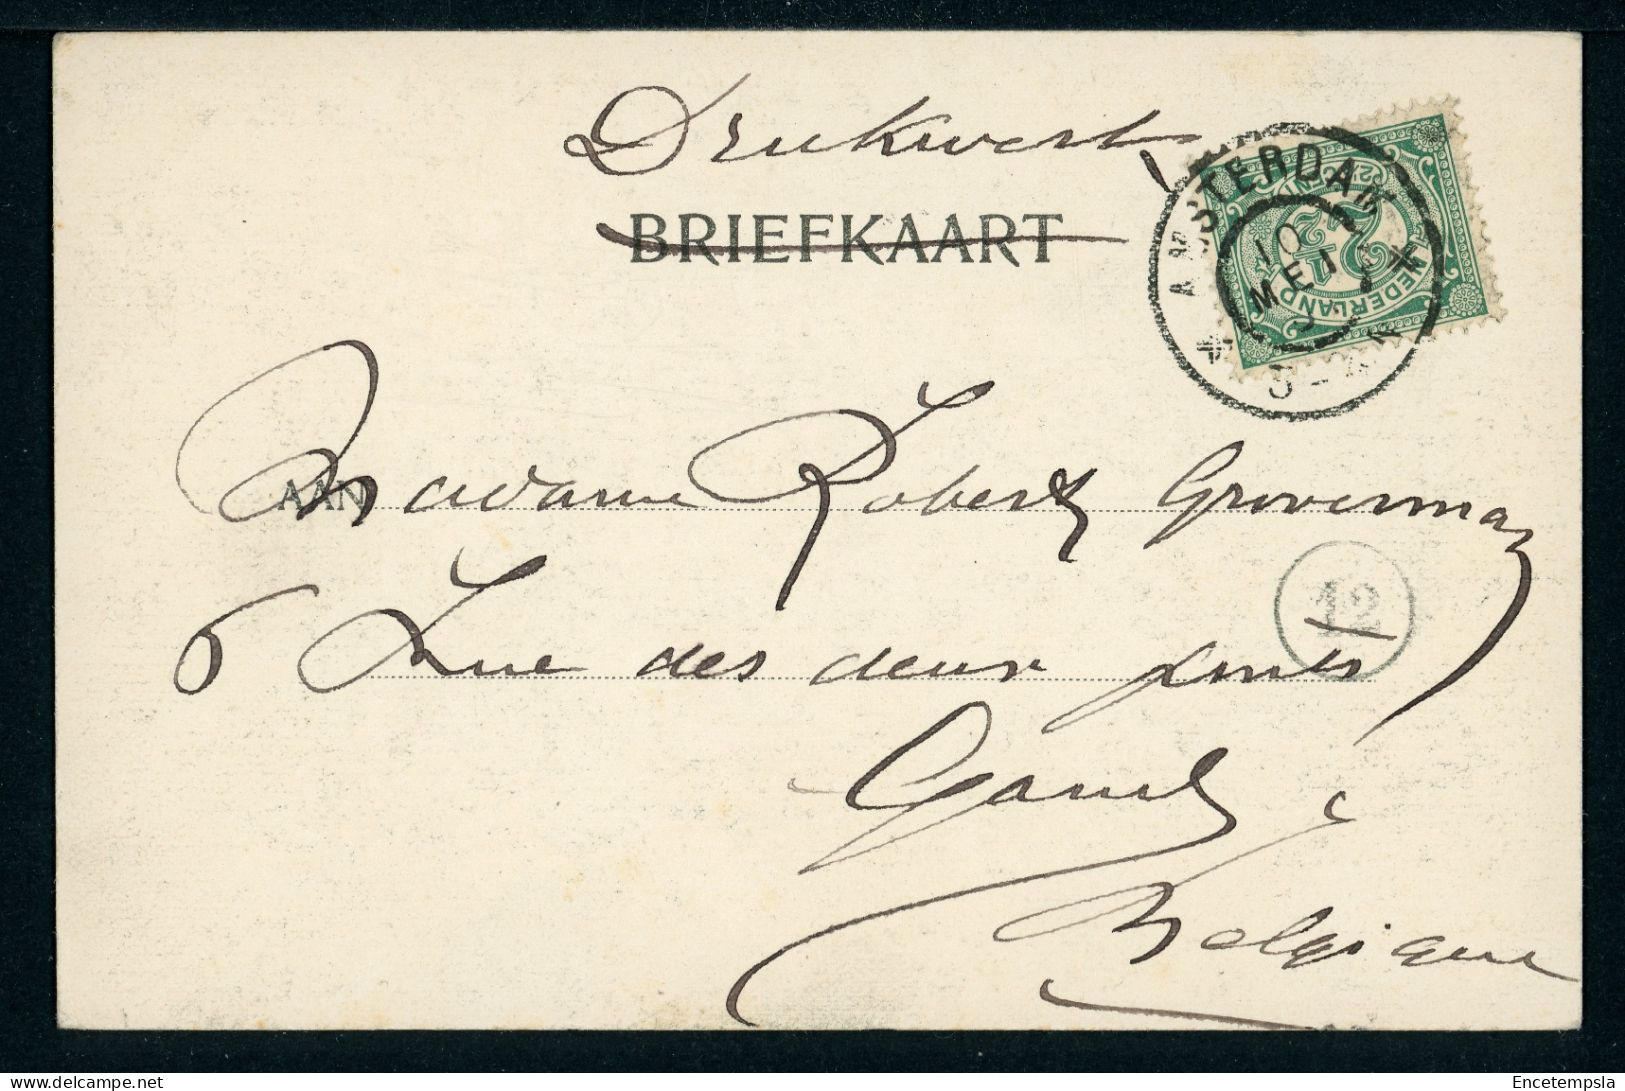 Drukwerk
BRIEFKAART
AMSTERDAM
10 MEI
NEDERLAND
2½
AAN Madame Robert Groverman
12
6 Rue des deux ponts
Gand
Belgique
www.delcampe.net
Encetempsla